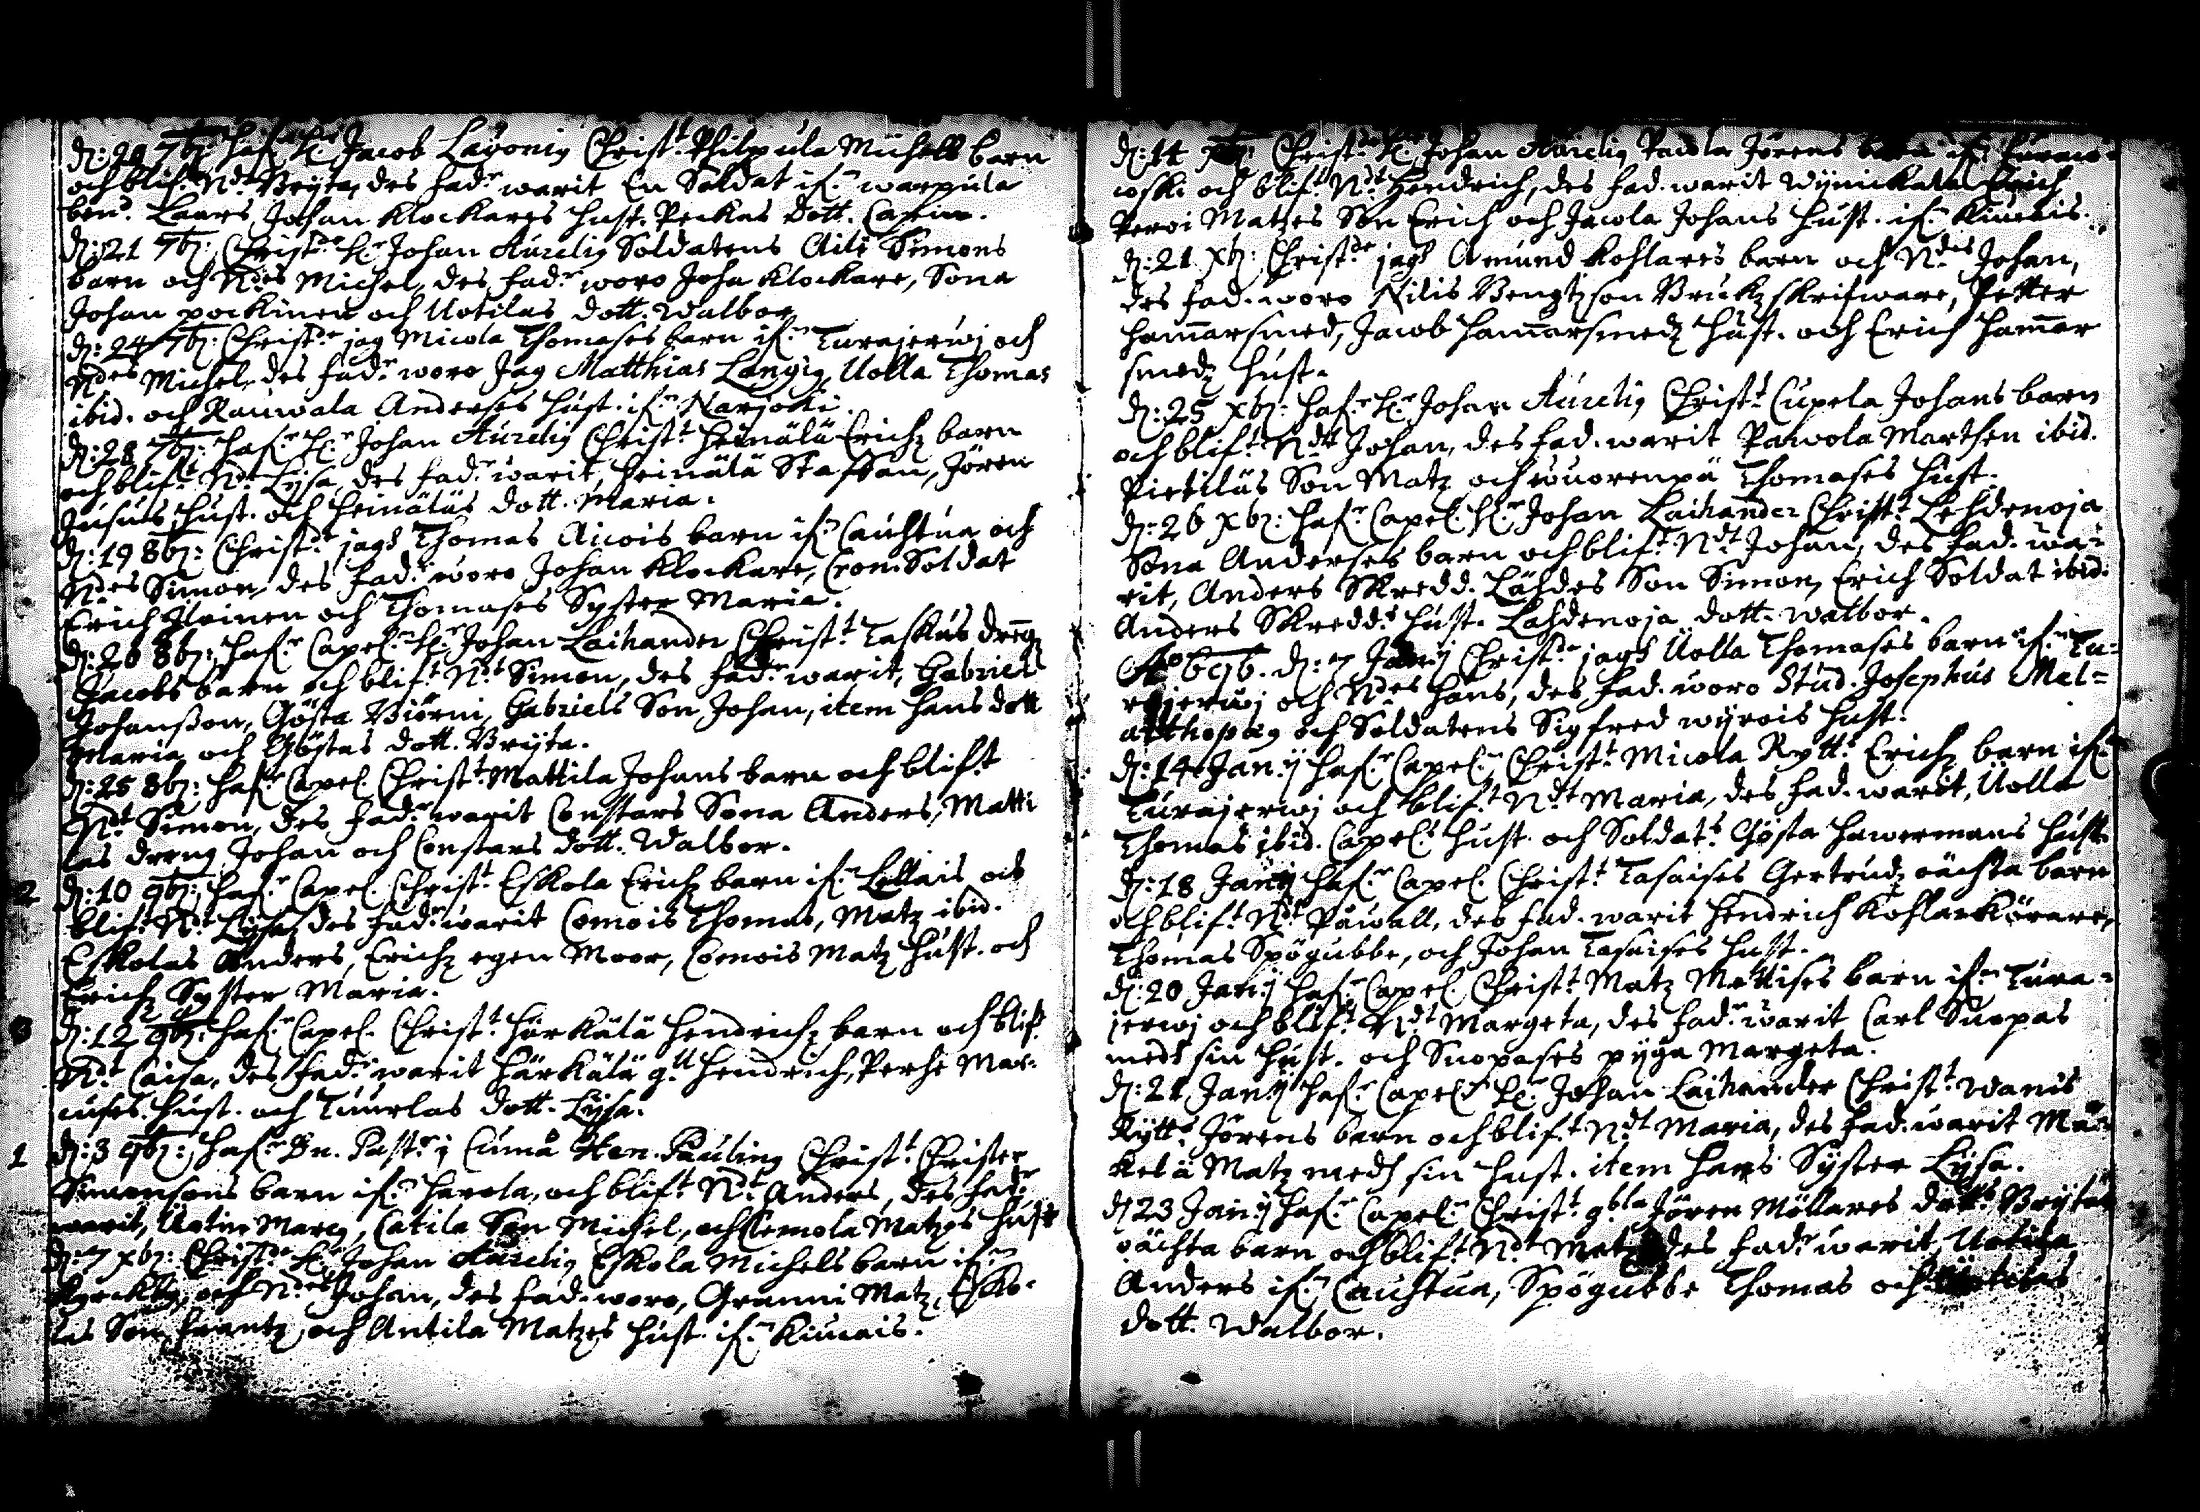 d: 20 7br: haf.r H.r Jacob Lavonig Christ.t Philpula Michels barn
och blif.t N.dt Bryta, des fad.r warit En Soldat if.n warpula
ben.d Laars, Johan Klockares hust. Peckas dott. Capin.
d: 21 7br: Christ.de H.r Johan Aurelig Soldatens Aili Simons
barn och N.des Michel, des fad.r woro Joha Klockare, Sona
Johan pockinen och Uotilas dott. Walbor
d: 24 7br: Christ.de jag Micola Thomases barn if.n Turajerwj och
N.des Michel, des fad.r woro Jag Matthias Langig, Uolla Thomas
ibid. och Rauwala Anderses hust. if.n Narjoki.
d: 28 7br: haf.r H.r Johan Aurelig Christ.t Heinälä Erichz barn
och blif.t N.dt Lysa, des fad.r warit, Heinälä Staffan, Jören
Jusuts hust. och Heinäläs dott. Maria.
d: 19 8br: Christ.de jag Thomas Aicois barn if.n Cauhtua och
N.des Simon, des fad.r woro Johan Klockare, Cron. Soldat
Erich Jloinen och Thomases Syster Maria.
d: 20 8br: haf.r Capel.n H.r Johan Laihander Christ.t Taskus drengz
Jacobs barn och blif.t N.dt Simon, des fad.r warit, Gabriel
Johansson, Gösta Biörni, Gabriels Son Johan, item hans dott
Maria och Göstas dott. Bryta.
d: 25 8br: haf.r Capel Christ.t Mattila Johans barn och blif.t
N.dt Simon, des fad.r warit Constars Sona Anders, Matti
las dreng Johan och Constars dott. Walbor.
2 d: 10 9br: haf.r Capel. Christ.t Eskola Erichz barn if.n Lellais och
blif.t N.dt Lysa, des fad.r warit Comois Thomas, Matz ibid.
Eskolas Anders, Erichz egen Moor, Comois Matz hust. och
Erichz Syster Maria.
3 d: 12 9br: haf.r Capel. Christ.t Härkälä Hendrichz barn och blif.t
N.dt Caisa, des fad.r warit Härkälä g.ll Hendrich, Perhe Mar-
cuses hust. och Tuurlas dott. Lysa.
1 d: 3 9br: haf.r Dn. Past.r j Cumå Hen. Pauling Christ.t Christer
Simonsons barn if.n Harola, och blif.t N.dt Anders, des fad.r
warit, Uotin Marcg, Catila Son Michel, och Clemola Matzes hust
d: 7 xbr: Christ.de H.r Johan Aurelig Eskola Michels barn if.n
och N.des Johan, des fad. woro, Granni Matz, Esko-
las Son Frantz, och Antila Matzes hust if.n Kiucais.
d: 14 Christ.de H.r Johan Aurelig Pacola Jörens barn if.n
woski och blif.t N.dt Hendrich, des fad. warit Wijnikala Erich
Peroi Matzes Son Erich och Jacola Johans hust. if.n Kiucais.
d: 21 xbr: Christ.de jag Amund Kohlares barn och N.des Johan,
des fad. woro Nilis Bengtzson Brukz skrifware, Petter
ham̄arsmed, Jacob ham̄arsmedz hust. och Erich ham̄ar
smedz hust.
d: 25 xbr: haf.r H.r Johan Aurelig Christ.t Cupela Johans barn
och blif.t N.dt Johan, des fad. warit Pawola Marthen ibid.
Pietiläs Son Matz och wuorenpä Thomases hust.
d: 26 xbr: haf.r Capel. H.r Johan Laihander Christ.t Lehdenoja
Sona Anderses barn och blif.t N.dt Johan, des fad. wa-
rit, Anders Skredd. Lähdes Son Simon, Erich Soldat ibid.
Anders Skredd.s hust. Lahdenoja dott. Walbor.
Ao 696. d: 7 Janij Christ.de jag Uolla Thomases barn if.n Tu-
rajerwj och N.des Hans, des fad. woro Stud. Josephus Mel-
arthopæg och Soldatens Sigfred wyrois hust.
d: 14 Janij haf.r Capel.n Christ.t Micola Rytt.r Erichz barn if.n
Turajerwj och blif.t N.dt Maria, des fad. warit, Uolla
Thomas ibid. Capel.s hust. och Soldat.s Gösta Hawermans hust.
d: 18 Janij haf.r Capel. Christ.t Tasaises Gertrudz oächta barn
och blif.t N.dt Påwall, des fad. warit Hendrich Kohlar Körare,
Thomas Spögubbe, och Johan Tasaises hust.
d: 20 Janij haf.r Capel. Christ.t Matz Mattises barn if.n Tura-
jerwj och blif.t N.dt Margeta, des fad.r warit Carl Suopas
med sin hust. och Suopases pyga Margeta.
d: 21 Janij haf.r Capel.n H.r Johan Laihander Christ.t Wanis
Rytt.s Jörens barn och blif.t N.dt Maria, des fad. warit Mä-
kelä Matz med sin hust. item hans Syster Lysa.
d 23 Janij haf.r Capel.n Christ.t g.bla Jören Möllares dott.s Brytas
oächta barn och blif.t N.dt Matz des fad.r warit Uotila
Anders if.n Cauhtua, Spögubbe Thomas och
dott. Walbor.